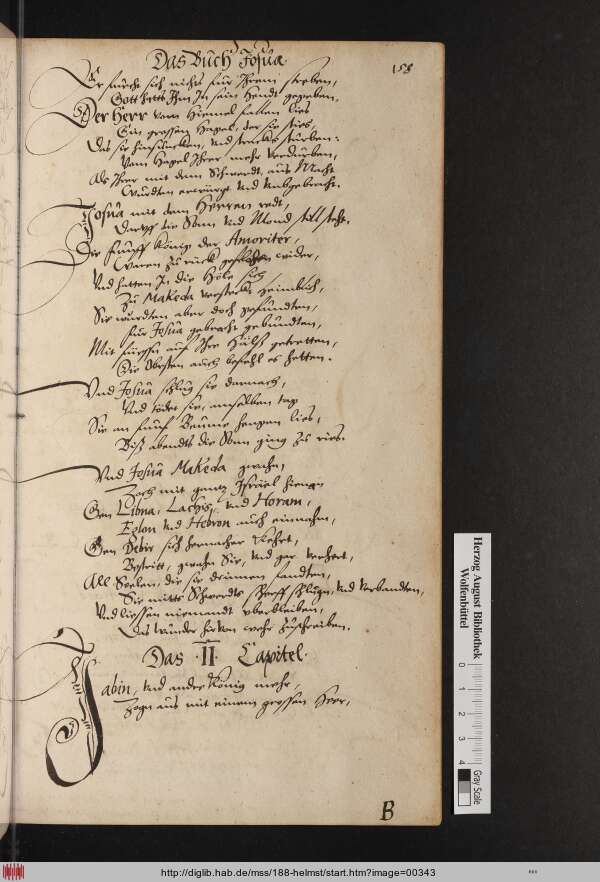 Das Buch Josua
158
Er forcht sich nichts für Ihrem streben,
Gott hetts Ihm In sein Hendt gegeben,
Der Herr vom Himel fallen lies
Ein grossen Hagel, der sie sties,
Das sie hinsuncken, vnd stracks sturben:
Vom Hagel Ihrer mehr verdurben,
Als Ihrer mit dem Schwerdt, aus Macht
Wurdten erwürgt vnd vmbgebracht.
Josua mit dem Herren redt,
Darvff die Sonn vnd Mond still steht.
Die fünff König der Amoriter,
Waren zu rück geflohen wider,
Vnd hatten In die Höle sich
Zu Makeda versteckt heimlich,
Sie wurdten aber doch gefundten,
für Josua gebracht gebundten,
Mit füessen auf Ihre Hälß getretten,
Die Obersten auch befehl es hetten.
Vnd Josua schlug sie darnach,
Vnd tödtet sie, am selben tag
Sie an fünf Beume hengen lies,
Biß abendts die Sonn ging zu ries.
Vnd Josua Makeda gwahn,
Zoch mit gantz Israel hienan
Gen Libna, Lachis, vnd Horam,
Eglon vnd Hebron auch einnahm,
Gen Debir sich hernacher kehrt,
Bestritt, gwahn Sie, vnd gar verhert,
All Seelen, die sie drinnen fandten,
Sie mitts Schwerdts scherff schlugn, vnd verbandten,
Vnd liessen niemandt vberbleiben,
Das wunder hievon wehr zuschreiben.
Das II Capitel.
Jabin, vnd andre König mehr,
Zogn aus mit einem grossen Heer,
B
Herzog August Bibliothek
Wolfenbüttel
0 1 2 3 4
Gray Scale
http://diglib.hab.de/mss/188-helmst/start.htm?image=00343